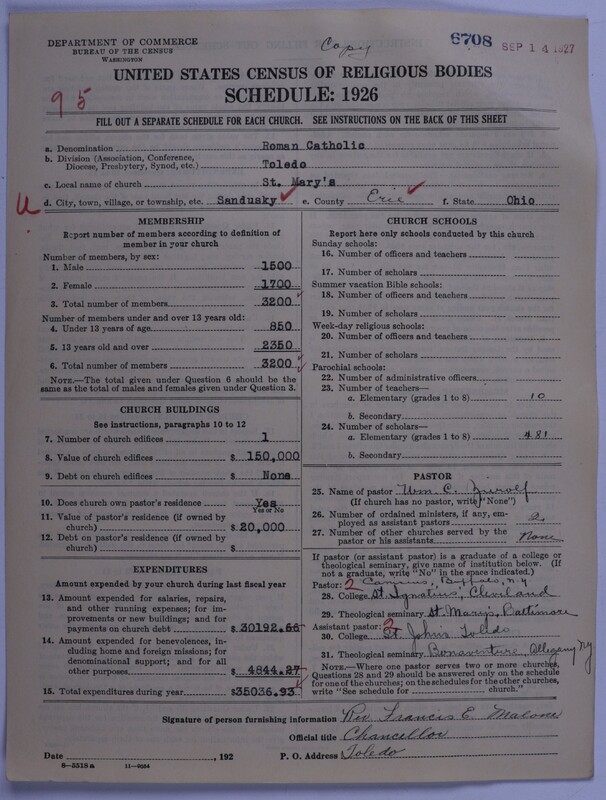 DEPARTMENT OF COMMERCE
BUREAU OF THE CENSUS
WASHINGTON
Copy
6708
SEP 14 1927
UNITED STATES CENSUS OF RELIGIOUS BODIES
SCHEDULE: 1926
95
FILL OUT A SEPARATE SCHEDULE FOR EACH CHURCH. SEE INSTRUCTIONS ON THE BACK OF THIS SHEET
a. Denomination Roman Catholic
b. Division (Association, Conference, Diocese, Presbytery, Synod, etc.) Toledo
c. Local name of church St. Mary's
U d. City, town, village, or township, etc. Sandusky e. County Erie f. State Ohio
MEMBERSHIP
Report number of members according to definition of
member in your church
Number of members, by sex:
1. Male 1500
2. Female 1700
3. Total number of members 3200
Number of members under and over 13 years old:
4. Under 13 years of age 850
5. 13 years old and over 2350
6. Total number of members 3200
NOTE.—The total given under Question 6 should be
same as the total of males and females given under Question 3.
CHURCH BUILDINGS
See instructions, paragraphs 10 to 12
7. Number of church edifices 1
8. Value of church edifices $ 150,000
9. Debt on church edifices $ None
10. Does church own pastor's residence Yes
Yes or No
11. Value of pastor's residence (if owned by
church) $ 20,000
12. Debt on pastor's residence (if owned by
church) $
EXPENDITURES
Amount expended by your church during last fiscal year
13. Amount expended for salaries, repairs,
and other running expenses; for im-
provements or new buildings; and for
payments on church debt $ 30192.66
14. Amount expended for benevolences, in-
cluding home and foreign missions; for
denominational support; and for all
other purposes $ 4844.27
15. Total expenditures during year $35036.93
CHURCH SCHOOLS
Report here only schools conducted by this church
Sunday schools:
16. Number of officers and teachers
17. Number of scholars
Summer vacation Bible schools:
18. Number of officers and teachers
19. Number of scholars
Week-day religious schools:
20. Number of officers and teachers
21. Number of scholars
Parochial schools:
22. Number of administrative officers
23. Number of teachers—
a. Elementary (grades 1 to 8) 10
b. Secondary
24. Number of scholars—
a. Elementary (grades 1 to 8) 481
b. Secondary
PASTOR
25. Name of pastor Wm. C.
(If church has no pastor, write "None")
26. Number of ordained ministers, if any, em-
ployed as assistant pastors 2
27. Number of other churches served by the
pastor or his assistants None
If pastor (or assistant pastor) is a graduate of a college or
theological seminary, give name of institution below. (If
not a graduate, write "No" in the space indicated.)
Pastor: 2 Canisius, Buffalo, N.Y
28. College St. Ignatius, Cleveland
29. Theological seminary St. Mary's, Baltimore
Assistant pastor: 2
30. College St. Johns Toledo
31. Theological seminary Bonaventure, Allegany NY
NOTE.—Where one pastor serves two or more churches,
Questions 28 and 29 should be answered only on the schedule
for one of the churches; on the schedules for the other churches,
write "See schedule for church."
Signature of person furnishing information Rev Francis E. Malone
Official title Chancellor
Date , 192 P. O. Address Toledo
8—5518a 11—9054